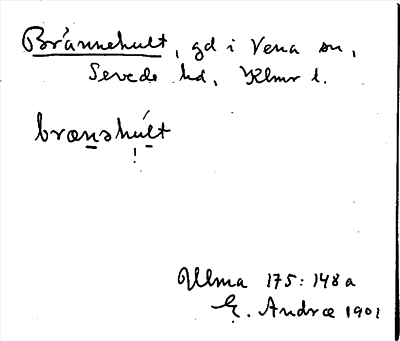 Brännehult, gd i Vena sn,
Sevede hd, Klmr l.
brænəhúlt
!
Ulma 175:148a
E. Andræ 1901